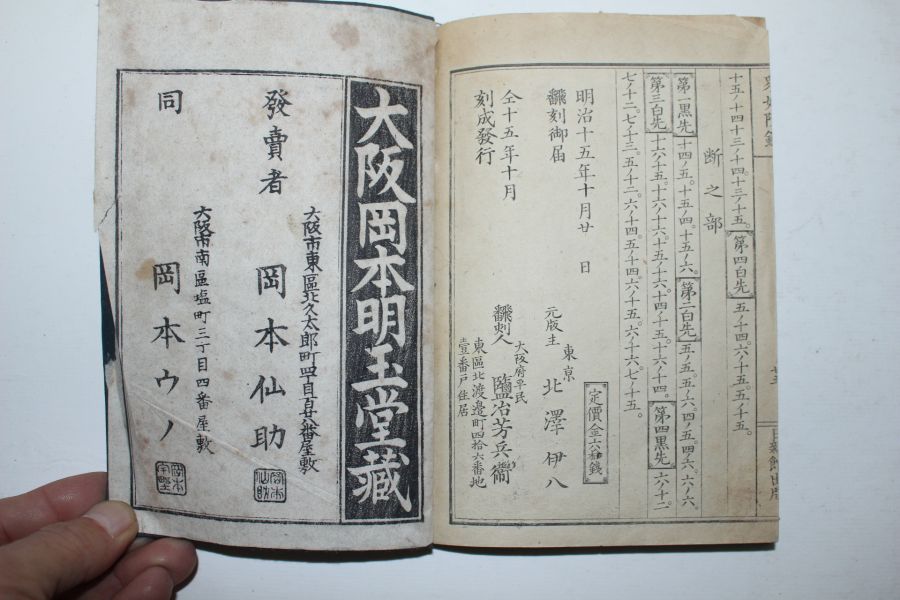 十五ノ十四十三ノ十四。十三ノ十五。第四白先 五ノ十四六ノ十五。五ノ十五。
断之部
第一黒先 十四ノ五。十五ノ四。十五ノ六。第二白先 五ノ五。五ノ六。四ノ五。四ノ六。六ノ六。
第三白先 十六ノ十五。十六ノ十六。十五ノ十六。十四ノ十五。十六ノ十四。第四黒先 六ノ十二
七ノ十二。七ノ十三。五ノ十二。六ノ十四五ノ十四。六ノ十五。五ノ十六。七ノ十五。
定價金六拾錢
明治十五年十月廿 日
飜刻御届
仝十五年十月
刻成發行
東京
元版主 北澤伊八
大阪府平民
飜刻人 鹽冶芳兵衞
東區北渡邊町四拾六番地
壹番戸住居
大阪岡本明玉堂藏
大阪市東區北久太郎町四丁目百廿八番屋敷
發賣者 岡本仙助
大阪市南區塩町三丁目四番屋敷
同 岡本ウノ